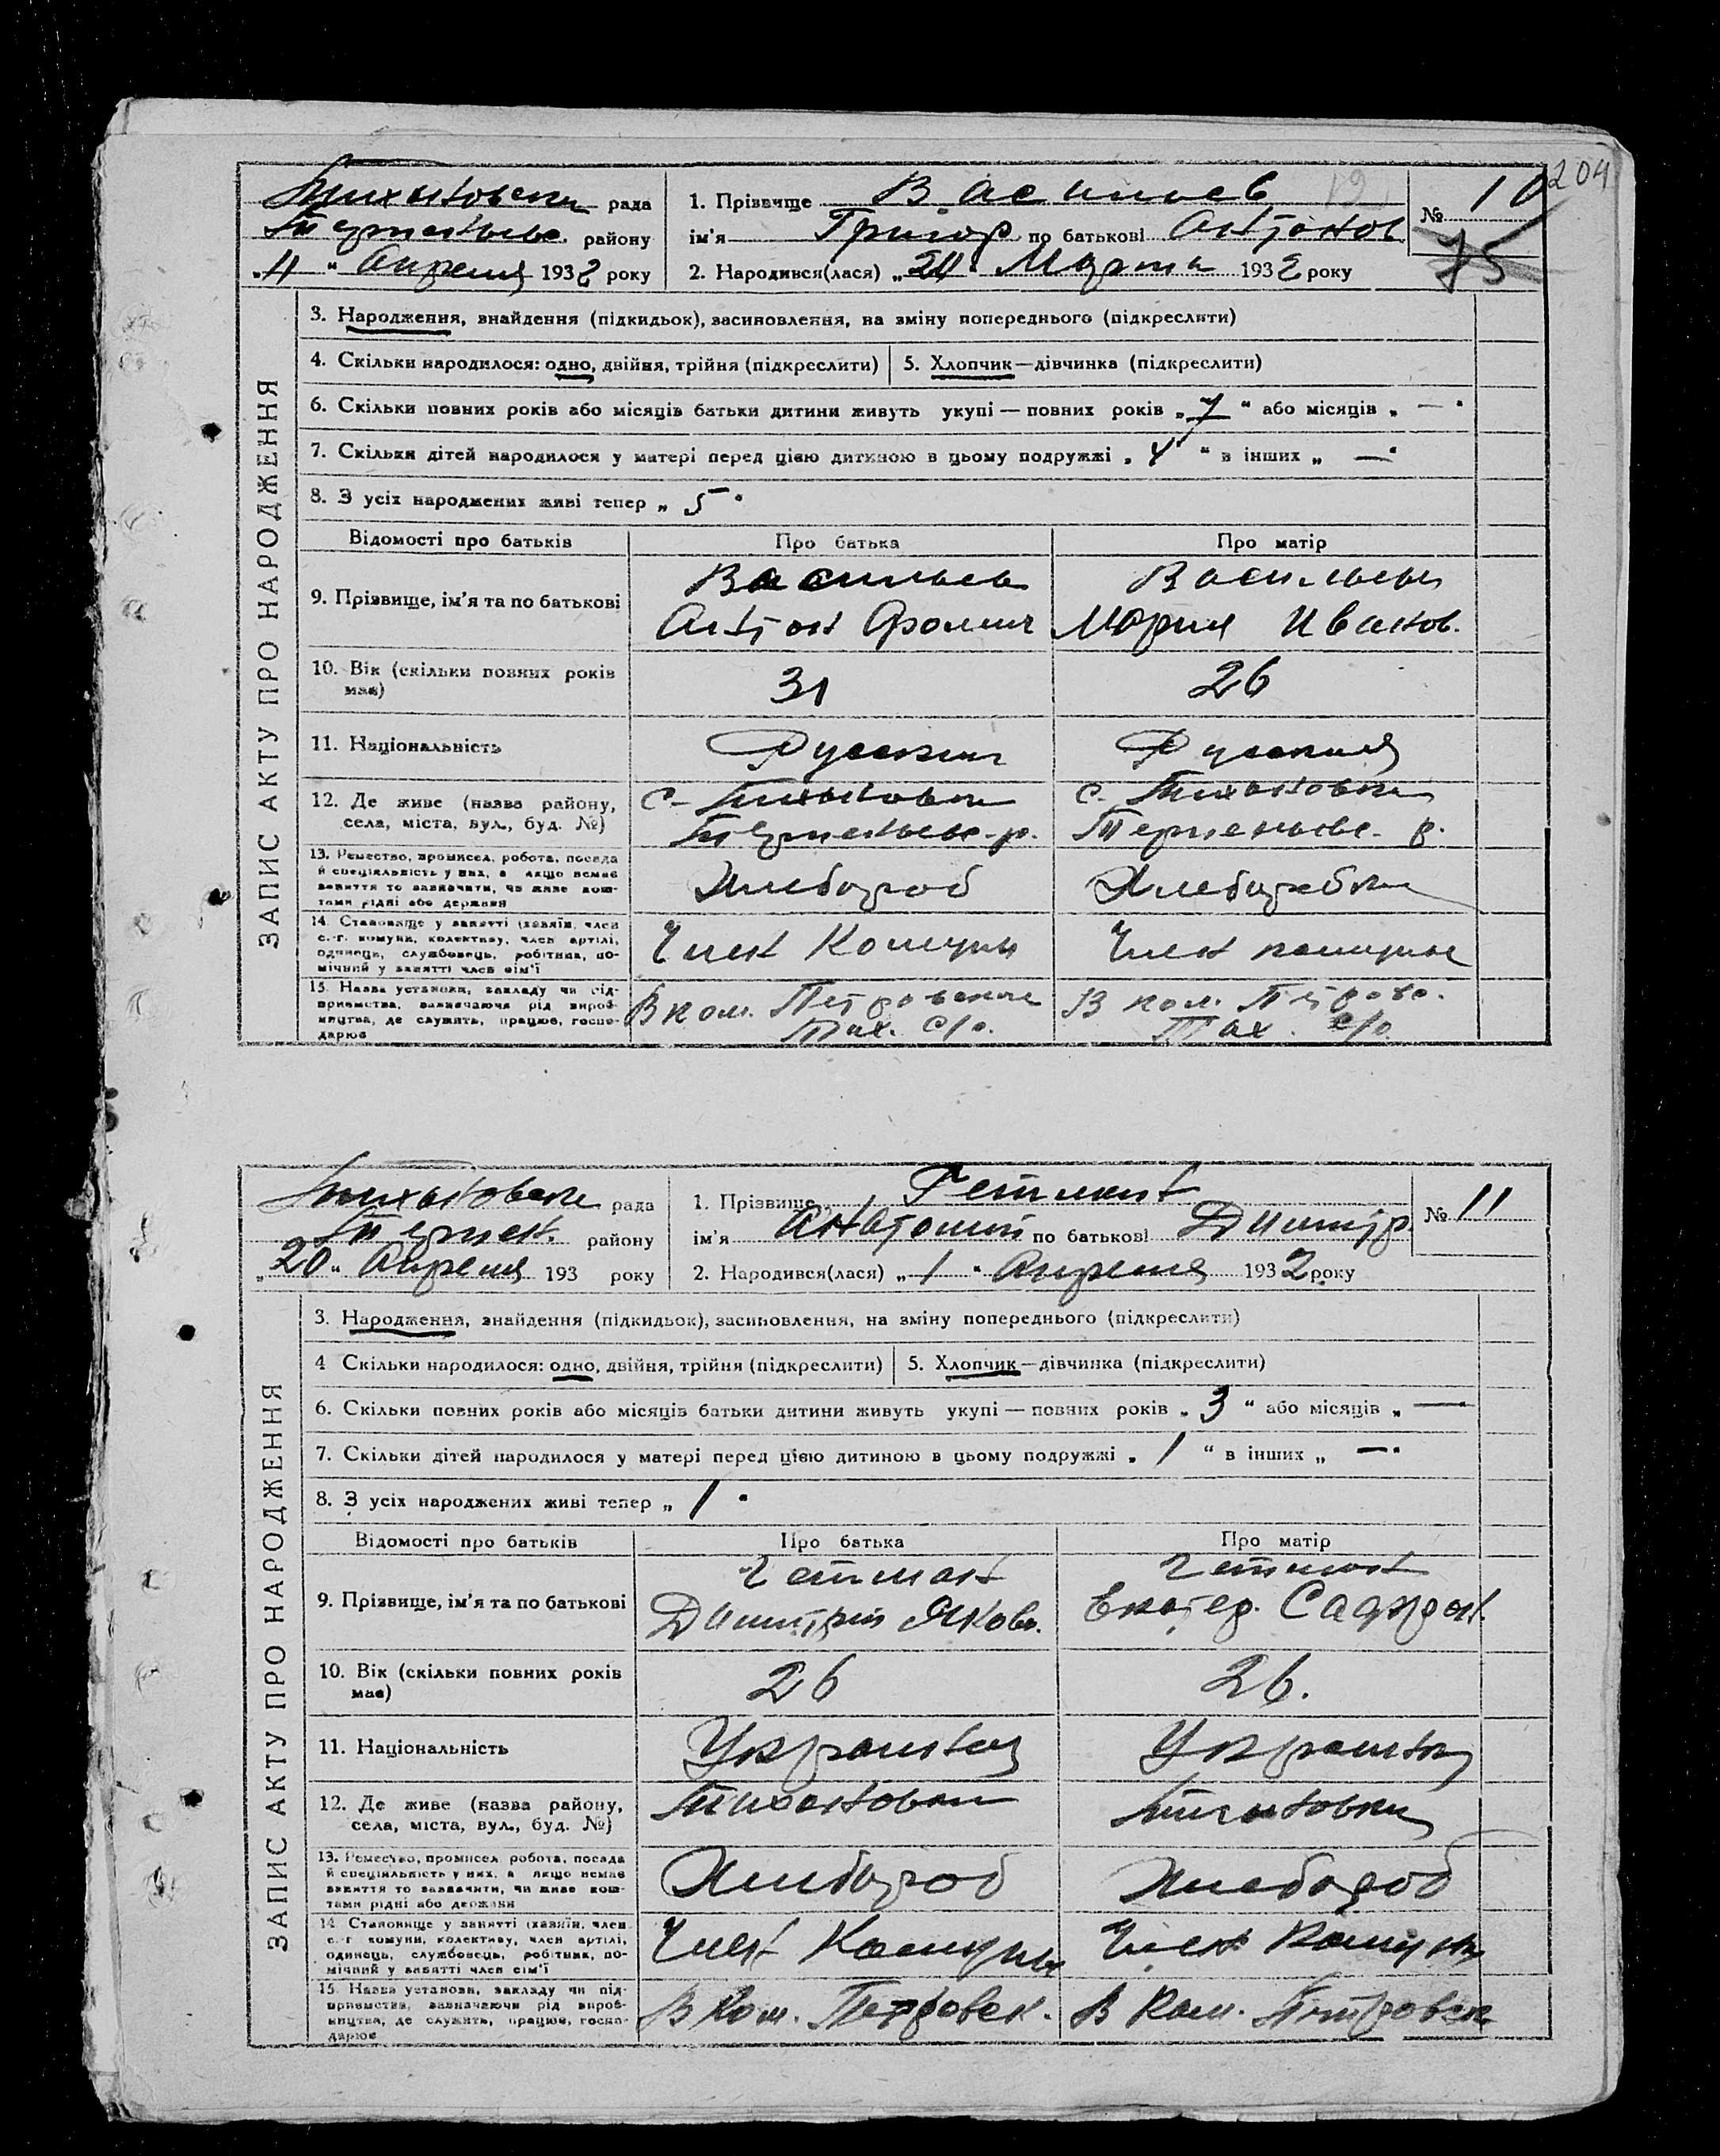 204
Тихановска рада
Терпеньевс. району
„11“ Апреля 1932 року
1. Прізвище Васильев
№ 10
75
ім'я Григор по батькові Антонов
2. Народився(лася) „24“ Марта 1932 року
ЗАПИС АКТУ ПРО НАРОДЖЕННЯ
3. Народження, знайдення (підкидьок), засиновлення, на зміну попереднього (підкреслити)
4. Скільки народилося: одно, двійня, трійня (підкреслити) 5. Хлопчик—дівчинка (підкреслити)
6. Скільки повних років або місяців батьки дитини живуть укупі — повних років „7“ або місяців „—“
7. Скільки дітей народилося у матері перед цією дитиною в цьому подружжі „4“ в інших „—“
8. З усіх народжених живі тепер „5“
Відомості про батьків Про батька Про матір
9. Прізвище, ім'я та по батькові
Васильев
Антон
Васильева
Мария Иванов.
10. Вік (скільки повних років має)
31 26
11. Національність
Русский Русская
12. Де живе (назва району, села, міста, вул., буд. №)
с- Тихановка
Терпеньевс. р.
с. Тихановка
Терпеньевс. р.
13. Ремество, промисел, робота, посада й спеціяльність у них, а якщо немає заняття то зазначити, чи живе коштами рідні або держави
Хлебороб Хлеборобка
14. Становище у занятті (хазяїн, член с.-г. комуни, колективу, член артілі, одинець, службовець, робітник, помічний у занятті член сім'ї
Член Комуны Член комуны
15. Назва установи, закладу чи підприємства, зазначаючи рід виробництва, де служить, працює, господарює
В ком. Петровского
Тих. с/о.
В ком. Петровс.
Тих. с/о.
Тихановска рада
Терпен. району
„20“ Апреля 193 року
1. Прізвище Гетман
№ 11
ім'я Анатолий по батькові Дмитр.
2. Народився(лася) „1“ Апреля 1932 року
ЗАПИС АКТУ ПРО НАРОДЖЕННЯ
3. Народження, знайдення (підкидьок), засиновлення, на зміну попереднього (підкреслити)
4 Скільки народилося: одно, двійня, трійня (підкреслити) 5. Хлопчик—дівчинка (підкреслити)
6. Скільки повних років або місяців батьки дитини живуть укупі — повних років „3“ або місяців „—“
7. Скільки дітей народилося у матері перед цією дитиною в цьому подружжі „1“ в інших „—“
8. З усіх народжених живі тепер „1“
Відомості про батьків Про батька Про матір
9. Прізвище, ім'я та по батькові
Гетман
Дмитрий Яковл.
Гетман
Екатер. Сафрон.
10. Вік (скільки повних років має)
26 26.
11. Національність
Украинец Украинка
12. Де живе (назва району, села, міста, вул., буд. №)
Тихановка Тихановка
13. Ремество, промисел, робота, посада й спеціяльність у них, а якщо немає заняття то зазначити, чи живе коштами рідні або держави
Хлебороб Хлебороб
14. Становище у занятті (хазяїн, член с.-г. комуни, колективу, член артілі, одинець, службовець, робітник, помічний у занятті член сім'ї
Член Комуны Член Комуны
15. Назва установи, закладу чи підприємства, зазначаючи рід виробництва, де служить, працює, господарює
В Ком. Петровск. В Ком. Петровск.